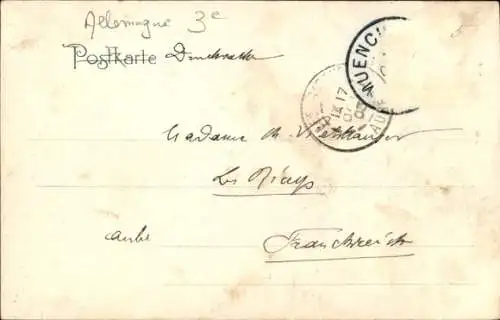 Allemagne 3e
Postkarte Drucksache
MUENCH
17
AUBE
Madame M.
Les Riceys
Aube Frankreich